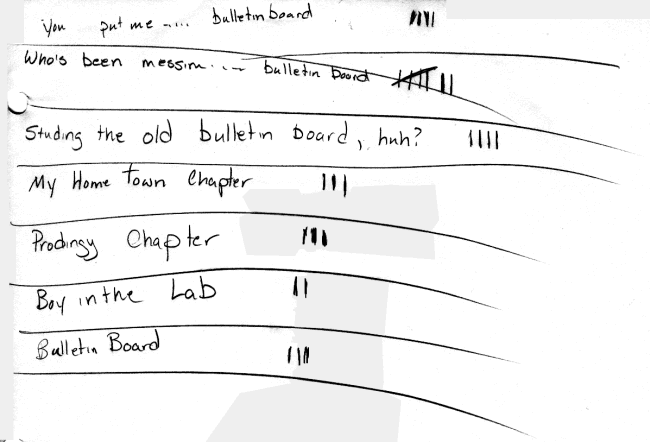 You put me ..... bulletin board IIII
Who's been messim.... bulletin board IIII II
Studing the old bulletin board, huh? IIII
My Home Town Chapter III
Prodingy Chapter III
Boy in the Lab II
Bulletin Board III